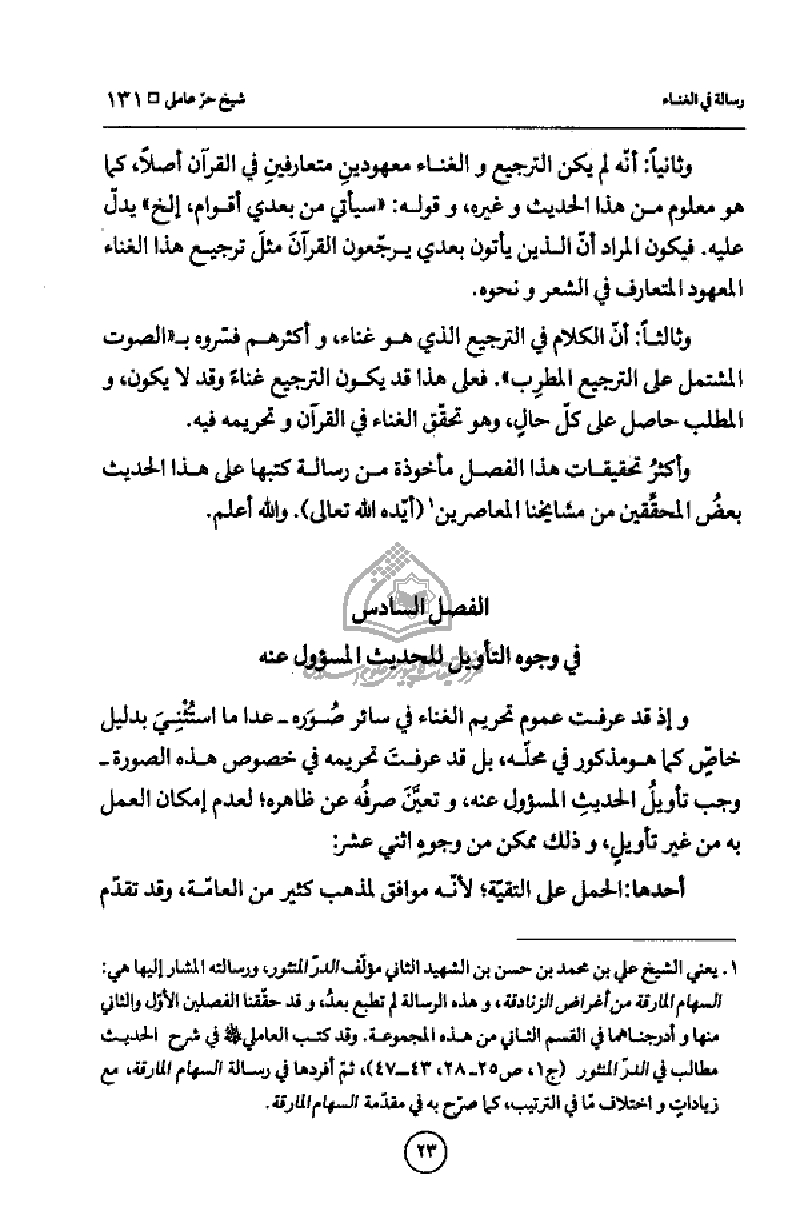 رسالة في الغناء
شیخ حرّ عاملی □ ۱۳۱
وثانياً: أنّه لم يكن الترجيع و الغناء معهودينِ متعارفينِ في القرآن أصلاً، كما
هو معلوم من هذا الحديث و غيره، و قوله: «سيأتي من بعدي أقوام، إلخ» يدلّ
عليه. فيكون المراد أنّ الذين يأتون بعدي يرجّعون القرآنَ مثلَ ترجيع هذا الغناء
المعهود المتعارف في الشعر و نحوه.
وثالثاً: أنّ الكلام في الترجيع الذي هو غناء، و أكثرهم فسّروه بـ«الصوت
المشتمل على الترجيع المطرِب». فعلى هذا قد يكون الترجيع غناءً وقد لا يكون، و
المطلب حاصل على كلّ حالٍ، وهو تحقّق الغناء في القرآن و تحريمه فيه.
وأكثرُ تحقيقات هذا الفصل مأخوذة من رسالة كتبها على هذا الحديث
بعضُ المحقّقين من مشايخنا المعاصرين۱ (أيّده الله تعالى). والله أعلم.
الفصل السادس
في وجوه التأويل للحديث المسؤول عنه
و إذ قد عرفت عموم تحريم الغناء في سائر صُوَره ـ عدا ما استُثْنِيَ بدليل
خاصٍّ كما هو مذكور في محلّه، بل قد عرفتَ تحريمه في خصوص هذه الصورة ـ
وجب تأويلُ الحديثِ المسؤول عنه، و تعيَّنَ صرفُه عن ظاهره؛ لعدم إمكان العمل
به من غير تأويلٍ، و ذلك ممكن من وجوهٍ اثني عشر:
أحدها: الحمل على التقيّة؛ لأنّه موافق لمذهب كثير من العامّة، وقد تقدّم
۱. يعني الشيخ علي بن محمد بن حسن بن الشهيد الثاني مؤلّف الدرّ المنثور، ورسالته المشار إليها هي:
السهام المارقة من أغراض الزنادقة، و هذه الرسالة لم تطبع بعدُ، و قد حقّقنا الفصلين الأوّل والثاني
منها و أدرجناهما في القسم الثاني من هذه المجموعة. وقد كتب العاملي في شرح الحديث
مطالب في الدرّ المنثور (ج۱، ص۲۵ـ۲۸، ۴۳ـ۴۷)، ثمّ أفردها في رسالة السهام المارقة، مع
زياداتٍ و اختلاف مّا في الترتيب، كما صرّح به في مقدّمة السهام المارقة.
۲۳